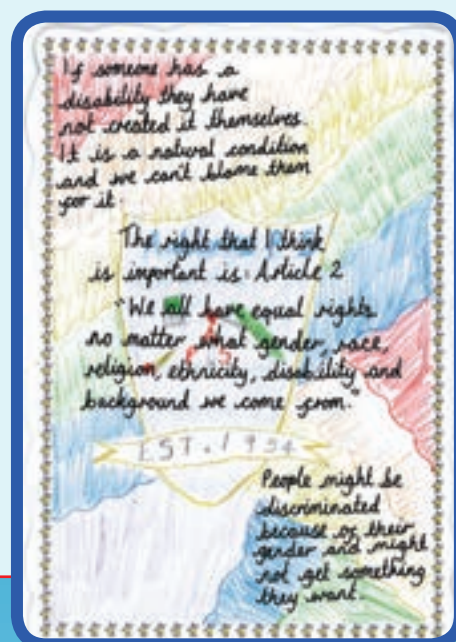 If someone has a
disability they have
not created it themselves.
It is a natural condition
and we can't blame them
for it.
The right that I think
is important is: Article 2
"We all have equal rights
no matter what gender, race,
religion, ethnicity, disability and
background we come from."
EST. 1954
People might be
discriminated
because of their
gender and might
not get something
they want.